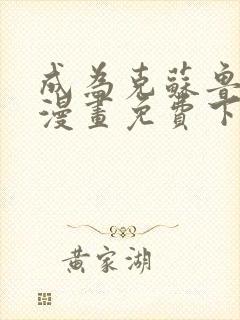 成為克蘇魯
漫畫免費下
黃家湖